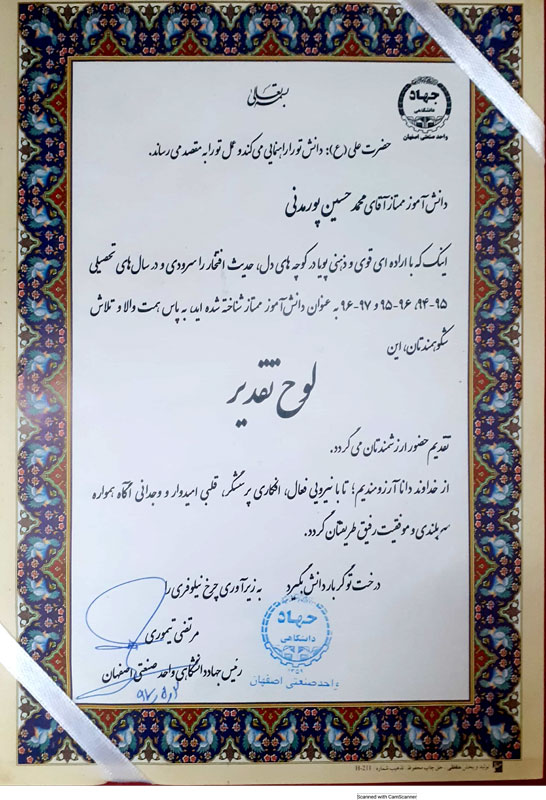 بسمه تعالی
جهاد
دانشگاهی
واحد صنعتی اصفهان
حضرت علی (ع): دانش تو را راهنمایی می کند و عمل تو را به مقصد می رساند.
دانش آموز ممتاز آقای محمد حسین پورمدنی
اینک که با اراده ای قوی و ذهنی پویا در کوچه های دل، حدیث افتخار را سرودی و در سال های تحصیلی
۹۵-۹۴، ۹۶-۹۵ و ۹۷-۹۶ به عنوان دانش آموز ممتاز شناخته شده اید، به پاس همت والا و تلاش
شکوهمندتان، این
لوح تقدیر
تقدیم حضور ارزشمندتان می گردد.
از خداوند دانا آرزومندیم؛ تا با نیرویی فعال، افکاری پرسشگر، قلبی امیدوار و وجدانی آگاه همواره
سربلندی و موفقیت رفیق طریقتان گردد.
درخت تو گر بار دانش بگیرد به زیر آوری چرخ نیلوفری را
جهاد
دانشگاهی
۱۳۵۹
واحد صنعتی اصفهان
مرتضی تیموری
رئیس جهاد دانشگاهی واحد صنعتی اصفهان
تولید و پخش حافظی حق چاپ محفوظ تذهیب شماره: H-231
Scanned with CamScanner